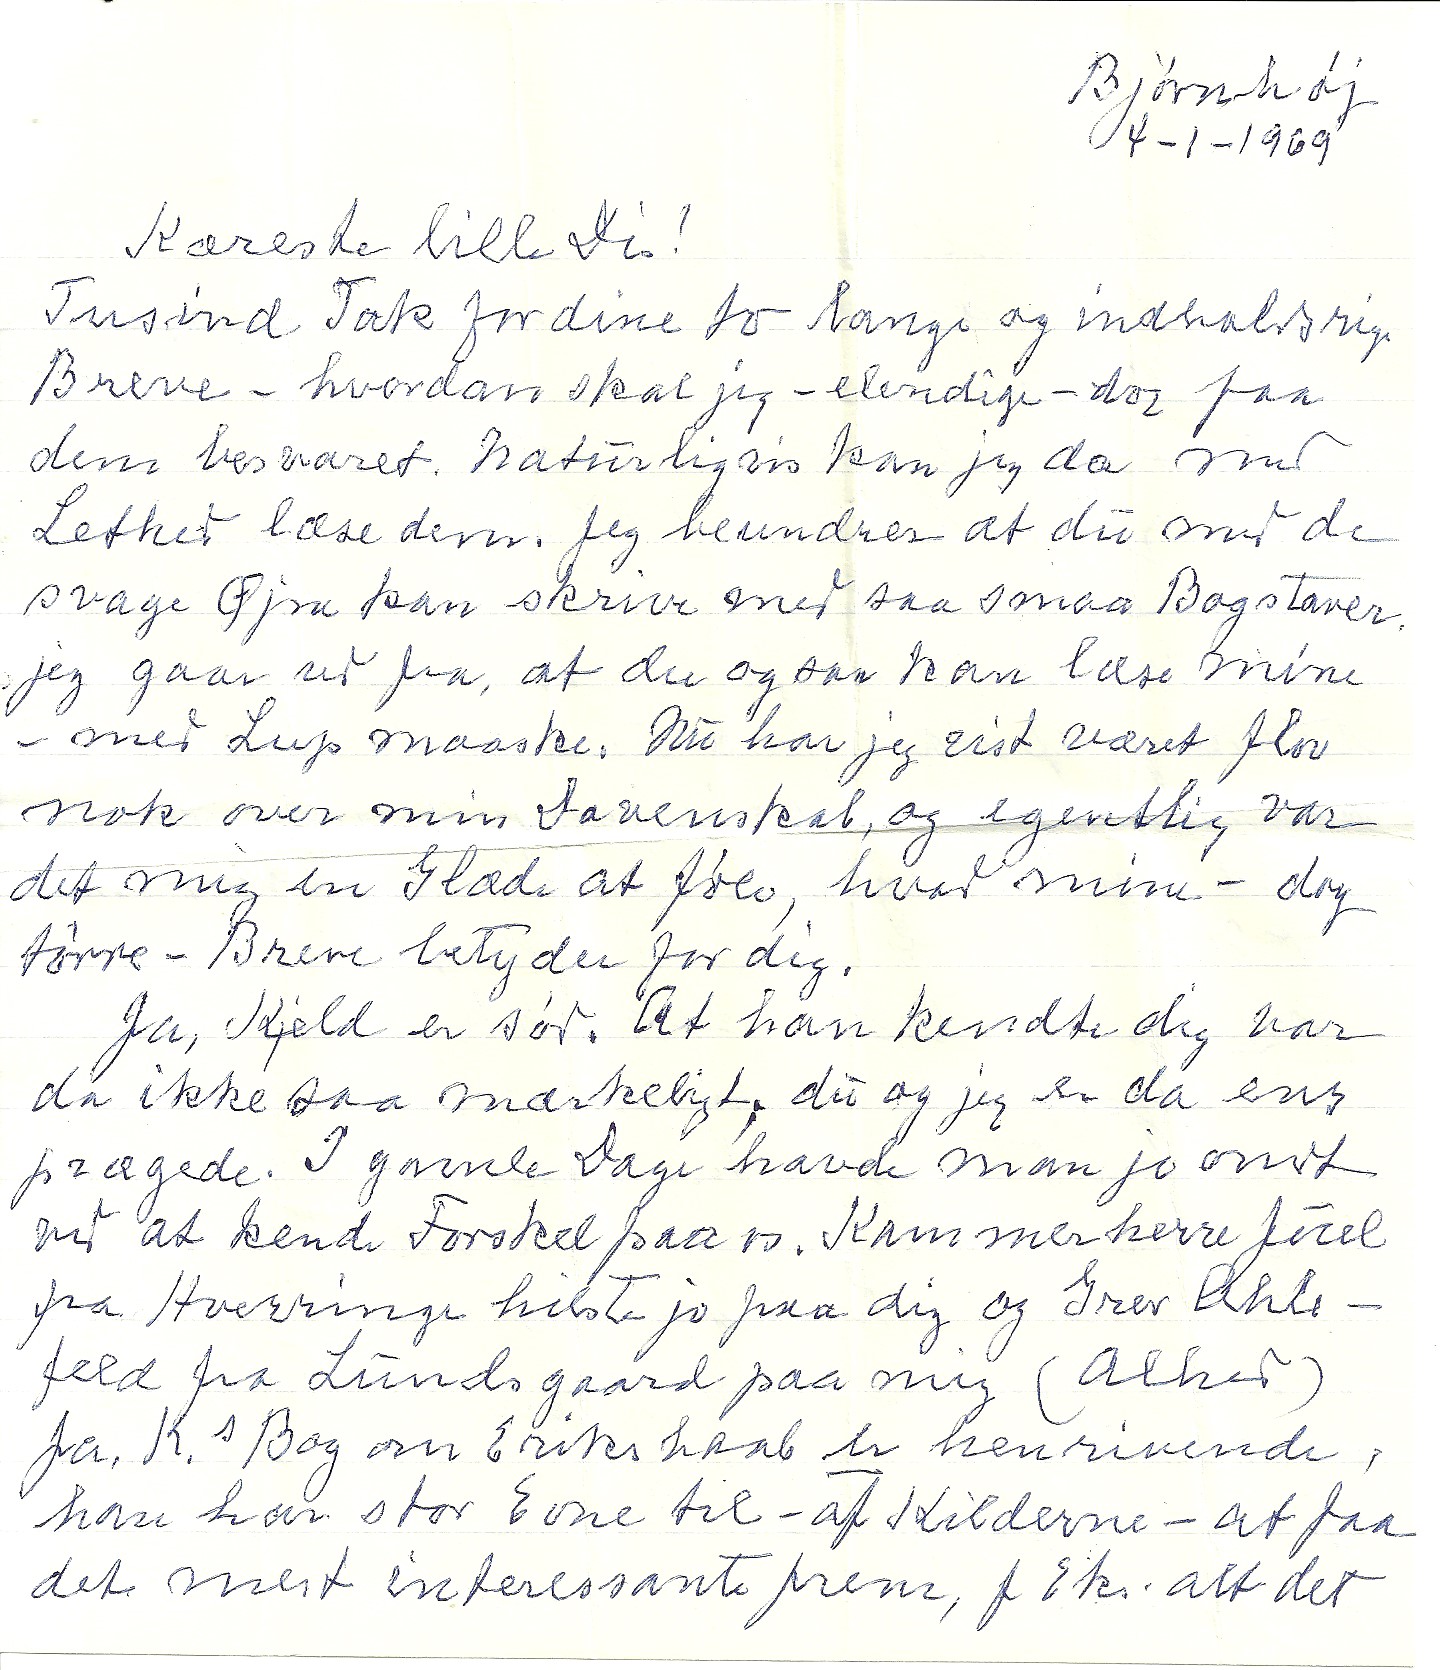 Bjørnhøj
4-1-1969
Kæreste lille Dis!
Tusind Tak for dine to lange og indholdsrige
Breve - hvordan skal jeg - elendige - dog faa
dem besvaret. Naturligvis kan jeg da med
Lethed læse dem. Jeg beundrer at du med de
svage Øjne kan skrive med saa smaa Bogstaver.
jeg gaar ud fra, at du ogsaa kan læse mine
- med Lup maaske. Nu har jeg vist været flov
nok over min Dovenskab, og egentlig var
det mig en Glæde at føle, hvad mine - dog
tørre - Breve betyder for dig.
Ja, Kjeld er sød. At han kendte dig var
da ikke saa mærkeligt, du og jeg er da ens
prægede. I gamle Dage havde man jo ondt
ved at kende Forskel paa os. Kammerherre Juel
fra Hverringe hilste jo paa dig og Grev Ahle-
feld fra Lundsgaard paa mig (Alhed)
Ja, K.s Bog om Erikshaab er henrivende,
han har stor Evne til - af Kilderne - at faa
det mest interessante frem, f Eks. alt det